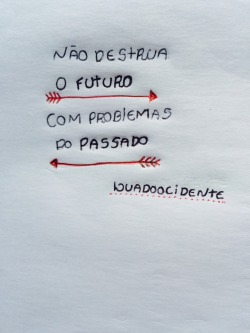 NÃO DESTRUA
O FUTURO
COM PROBLEMAS
DO PASSADO
LUADOOCIDENTE